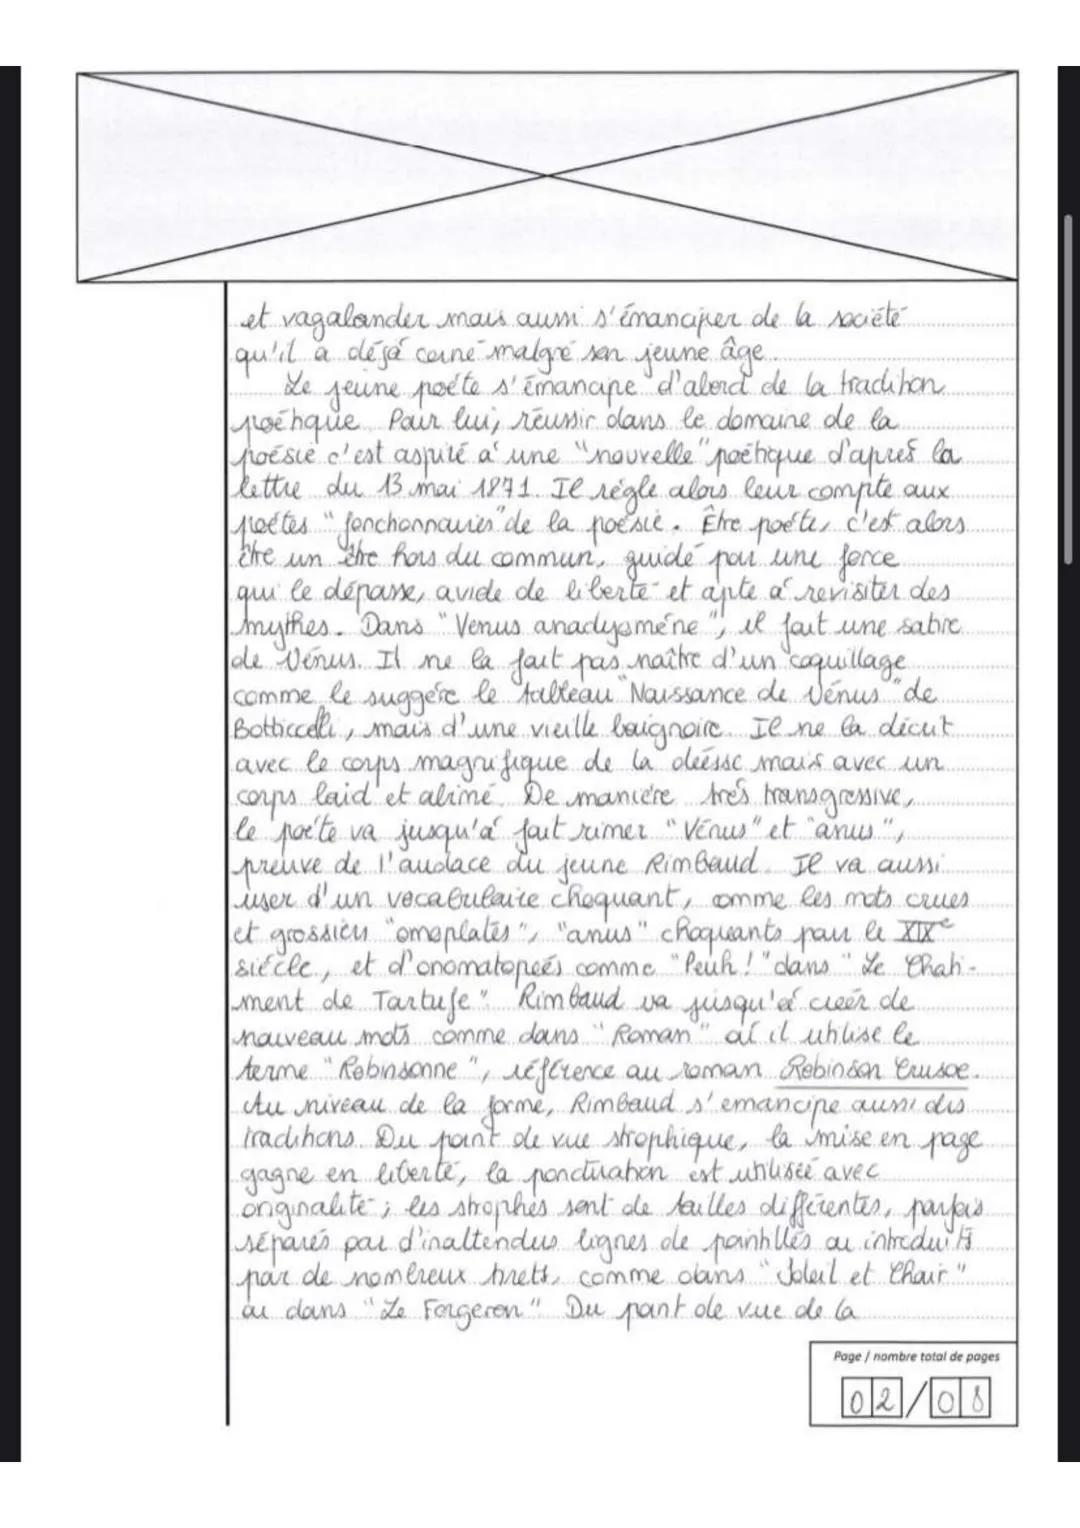 et vagalonder mais aussi s'émanciper de la société
qu'il a déjà cerné malgré son jeune âge.
Le jeune poète s'émancipe d'abord de la tradition
poétique. Pour lui, réussir dans le domaine de la
poésie c'est aspiré à une "nouvelle" poétique d'après la
lettre du 13 mai 1871. Il règle alors leur compte aux
poètes "fonctionnaires" de la poésie. Être poète, c'est alors
être un être hors du commun, guidé par une force
qui le dépasse, avide de liberté et apte à revisiter des
mythes. Dans "Venus anadyomène", il fait une satire
de Vénus. Il ne la fait pas naître d'un coquillage
comme le suggère le tableau "Naissance de Vénus" de
Botticcelli, mais d'une vieille baignoire. Il ne la décrit
avec le corps magnifique de la déesse mais avec un
corps laid et abîmé. De manière très transgressive,
le poète va jusqu'à fait rimer "Vénus" et "anus",
preuve de l'audace du jeune Rimbaud. Il va aussi
user d'un vocabulaire choquant, comme les mots crues
et grossiers "omoplates", "anus" choquants pour le XIXe
siècle, et d'onomatopeés comme "Peuh!" dans "Le Chati-
ment de Tartufe". Rimbaud va jusqu'à créer de
nouveau mots comme dans "Roman" où il utilise le
terme "Robinsonne", référence au roman Robinson Crusoe.
Au niveau de la forme, Rimbaud s'émancipe aussi des
traditions. Du point de vue strophique, la mise en page
gagne en liberté, la ponctuation est utilisée avec
originalité ; les strophes sont de tailles différentes, parfois
séparés par d'inattendus lignes de pointillés ou introduits
par de nombreux tirets, comme dans "Soleil et Chair"
ou dans "Le Forgeron". Du point de vue de la
Page / nombre total de pages
02/08